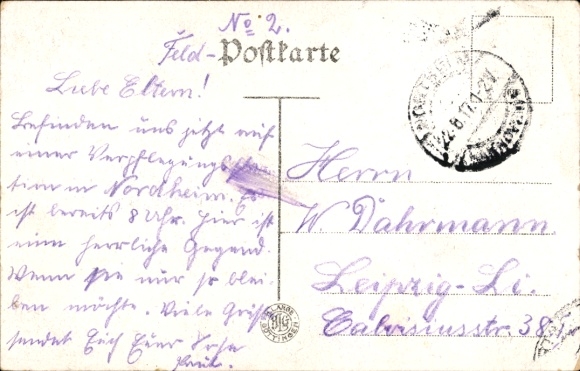 No 2.
Feld-Postkarte
Liebe Eltern!
Befinden uns jetzt auf
einer Verpflegungssta-
tion in Nordheim. Es
ist bereits 8 Uhr. Hier ist
eine herrliche Gegend.
Wenn sie nur so blei-
ben möchte. Viele Grüße
sendet Euch Euer Sohn
Paul.
Herrn
W Dährmann
Leipzig-Li.
Calvisiusstr. 38